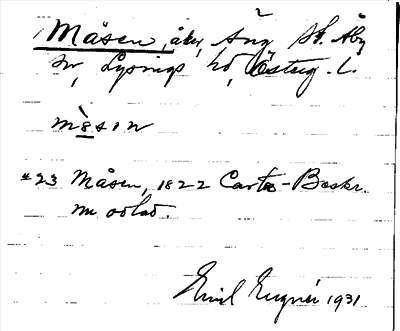 Måsen, åker, Äng, St. Åby
sn, Lysings hd, Österg. l.
måsen
*23 Måsen, 1822 Carta-Beskr.
m odlad.
Emil 1931